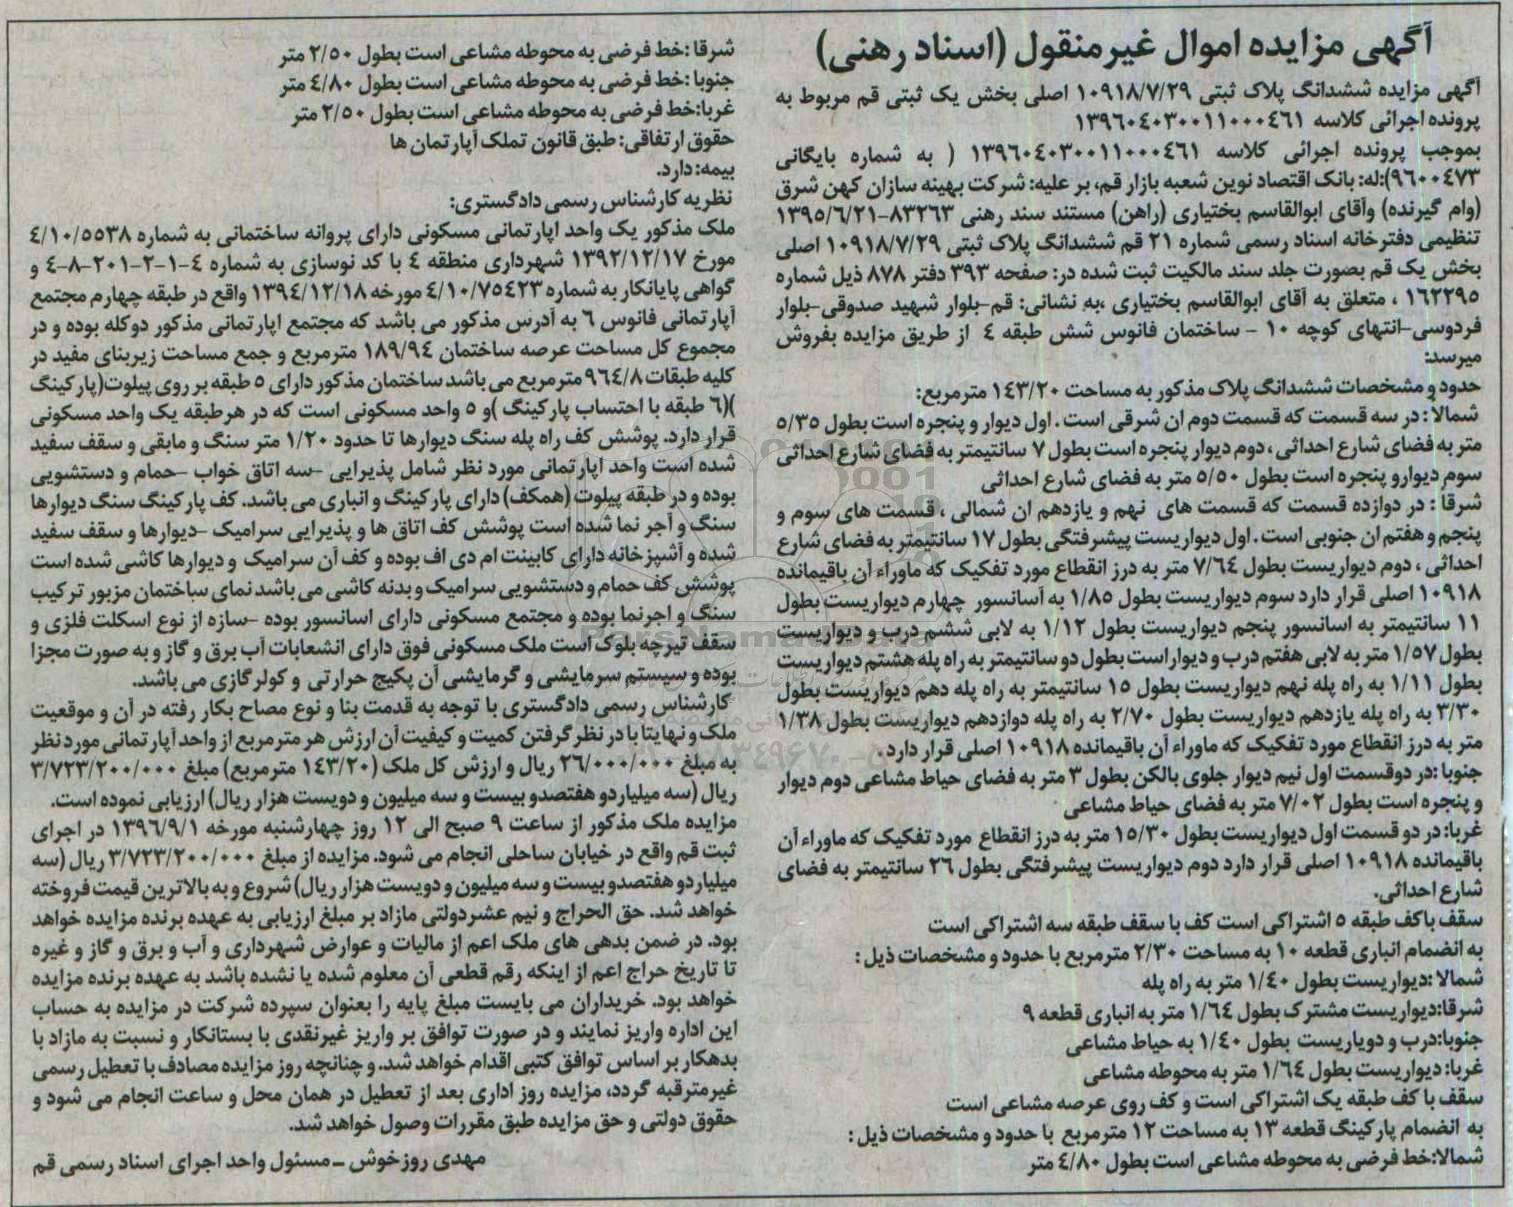 آگهی مزایده اموال غیرمنقول (اسناد رهنی)
آگهی مزایده ششدانگ پلاک ثبتی ۱۰۹۱۸/۷/۲۹ اصلی بخش یک ثبتی قم مربوط به
پرونده اجرائی کلاسه ۱۳۹۶۰۴۰۳۰۰۱۱۰۰۰۴۶۱
بموجب پرونده اجرائی کلاسه ۱۳۹۶۰۴۰۳۰۰۱۱۰۰۰۴۶۱ ( به شماره بایگانی
۹۶۰۰۴۷۳):له: بانک اقتصاد نوین شعبه بازار قم، بر علیه: شرکت بهینه سازان کهن شرق
(وام گیرنده) وآقای ابوالقاسم بختیاری (راهن) مستند سند رهنی ۸۳۲۶۳-۱۳۹۵/۶/۲۱
تنظیمی دفترخانه اسناد رسمی شماره ۲۱ قم ششدانگ پلاک ثبتی ۱۰۹۱۸/۷/۲۹ اصلی
بخش یک قم بصورت جلد سند مالکیت ثبت شده در: صفحه ۳۹۳ دفتر ۸۷۸ ذیل شماره
۱۶۲۲۹۵ ، متعلق به آقای ابوالقاسم بختیاری ،به نشانی: قم-بلوار شهید صدوقی-بلوار
فردوسی-انتهای کوچه ۱۰ - ساختمان فانوس شش طبقه ۴ از طریق مزایده بفروش
میرسد:
حدود و مشخصات ششدانگ پلاک مذکور به مساحت ۱۴۳/۲۰ مترمربع:
شمالاً : در سه قسمت که قسمت دوم ان شرقی است . اول دیوار و پنجره است بطول ۵/۳۵
متر به فضای شارع احداثی ، دوم دیوار پنجره است بطول ۷ سانتیمتر به فضای شارع احداثی
سوم دیوارو پنجره است بطول ۵/۵۰ متر به فضای شارع احداثی
شرقا : در دوازده قسمت که قسمت های نهم و یازدهم ان شمالی ، قسمت های سوم و
پنجم و هفتم ان جنوبی است . اول دیواریست پیشرفتگی بطول ۱۷ سانتیمتر به فضای شارع
احداثی ، دوم دیواریست بطول ۷/۶۴ متر به درز انقطاع مورد تفکیک که ماوراء آن باقیمانده
۱۰۹۱۸ اصلی قرار دارد سوم دیواریست بطول ۱/۸۵ به آسانسور چهارم دیواریست بطول
۱۱ سانتیمتر به اسانسور پنجم دیواریست بطول ۱/۱۲ به لابی ششم درب و دیواریست
بطول ۱/۵۷ متر به لابی هفتم درب و دیوار است بطول دو سانتیمتر به راه پله هشتم دیواریست
بطول ۱/۱۱ به راه پله نهم دیواریست بطول ۱۵ سانتیمتر به راه پله دهم دیواریست بطول
۳/۳۰ به راه پله یازدهم دیواریست بطول ۲/۷۰ به راه پله دوازدهم دیواریست بطول ۱/۳۸
متر به درز انقطاع مورد تفکیک که ماوراء آن باقیمانده ۱۰۹۱۸ اصلی قرار دارد.
جنوبا :در دوقسمت اول نیم دیوار جلوی بالکن بطول ۳ متر به فضای حیاط مشاعی دوم دیوار
و پنجره است بطول ۷/۰۲ متر به فضای حیاط مشاعی
غربا: در دو قسمت اول دیواریست بطول ۱۵/۳۰ متر به درز انقطاع مورد تفکیک که ماوراء آن
باقیمانده ۱۰۹۱۸ اصلی قرار دارد دوم دیواریست پیشرفتگی بطول ۲۶ سانتیمتر به فضای
شارع احداثی.
سقف باکف طبقه ۵ اشتراکی است کف با سقف طبقه سه اشتراکی است
به انضمام انباری قطعه ۱۰ به مساحت ۲/۳۰ مترمربع با حدود و مشخصات ذیل :
شمالا :دیواریست بطول ۱/۴۰ متر به راه پله
شرقا:دیواریست مشترک بطول ۱/۶۴ متر به انباری قطعه ۹
جنوبا:درب و دویاریست بطول ۱/۴۰ به حیاط مشاعی
غربا: دیواریست بطول ۱/۶۴ متر به محوطه مشاعی
سقف با کف طبقه یک اشتراکی است و کف روی عرصه مشاعی است
به انضمام پارکینگ قطعه ۱۳ به مساحت ۱۲ مترمربع با حدود و مشخصات ذیل :
شمالا:خط فرضی به محوطه مشاعی است بطول ۴/۸۰ متر
شرقا :خط فرضی به محوطه مشاعی است بطول ۲/۵۰ متر
جنوبا :خط فرضی به محوطه مشاعی است بطول ۴/۸۰ متر
غربا:خط فرضی به محوطه مشاعی است بطول ۲/۵۰ متر
حقوق ارتفاقی: طبق قانون تملک آپارتمان ها
بیمه: دارد.
نظریه کارشناس رسمی دادگستری:
ملک مذکور یک واحد اپارتمانی مسکونی دارای پروانه ساختمانی به شماره ۴/۱۰/۵۵۳۸
مورخ ۱۳۹۲/۱۲/۱۷ شهرداری منطقه ۴ با کد نوسازی به شماره ۴-۱-۲-۲۰۱-۸-۴ و
گواهی پایانکار به شماره ۴/۱۰/۷۵۴۲۳ مورخه ۱۳۹۴/۱۲/۱۸ واقع در طبقه چهارم مجتمع
آپارتمانی فانوس ۶ به آدرس مذکور می باشد که مجتمع اپارتمانی مذکور دوکله بوده و در
مجموع کل مساحت عرصه ساختمان ۱۸۹/۹۴ مترمربع و جمع مساحت زیربنای مفید در
کلیه طبقات ۹۶۴/۸ مترمربع می باشد ساختمان مذکور دارای ۵ طبقه بر روی پیلوت(پارکینگ
)(۶ طبقه با احتساب پارکینگ )و ۵ واحد مسکونی است که در هرطبقه یک واحد مسکونی
قرار دارد. پوشش کف راه پله سنگ دیوارها تا حدود ۱/۲۰ متر سنگ و مابقی و سقف سفید
شده است واحد اپارتمانی مورد نظر شامل پذیرایی -سه اتاق خواب -حمام و دستشویی
بوده و در طبقه پیلوت (همکف) دارای پارکینگ و انباری می باشد. کف پارکینگ سنگ دیوارها
سنگ و آجر نما شده است پوشش کف اتاق ها و پذیرایی سرامیک -دیوارها و سقف سفید
شده و آشپزخانه دارای کابینت ام دی اف بوده و کف آن سرامیک و دیوارها کاشی شده است
پوشش کف حمام و دستشویی سرامیک و بدنه کاشی می باشد نمای ساختمان مزبور ترکیب
سنگ و اجرنما بوده و مجتمع مسکونی دارای اسانسور بوده -سازه از نوع اسکلت فلزی و
سقف تیرچه بلوک است ملک مسکونی فوق دارای انشعابات آب برق و گاز و به صورت مجزا
بوده و سیستم سرمایشی و گرمایشی آن پکیج حرارتی و کولرگازی می باشد.
کارشناس رسمی دادگستری با توجه به قدمت بنا و نوع مصاح بکار رفته در آن و موقعیت
ملک و نهایتا با در نظر گرفتن کمیت و کیفیت آن ارزش هر مترمربع از واحد آپارتمانی مورد نظر
به مبلغ ۲۶/۰۰۰/۰۰۰ ریال و ارزش کل ملک (۱۴۳/۲۰ مترمربع) مبلغ ۳/۷۲۳/۲۰۰/۰۰۰
ریال (سه میلیاردو هفتصدو بیست و سه میلیون و دویست هزار ریال) ارزیابی نموده است.
مزایده ملک مذکور از ساعت ۹ صبح الی ۱۲ روز چهارشنبه مورخه ۱۳۹۶/۹/۱ در اجرای
ثبت قم واقع در خیابان ساحلی انجام می شود. مزایده از مبلغ ۳/۷۲۳/۲۰۰/۰۰۰ ریال (سه
میلیاردو هفتصدو بیست و سه میلیون و دویست هزار ریال) شروع و به بالاترین قیمت فروخته
خواهد شد. حق الحراج و نیم عشردولتی مازاد بر مبلغ ارزیابی به عهده برنده مزایده خواهد
بود. در ضمن بدهی های ملک اعم از مالیات و عوارض شهرداری و آب و برق و گاز و غیره
تا تاریخ حراج اعم از اینکه رقم قطعی آن معلوم شده یا نشده باشد به عهده برنده مزایده
خواهد بود. خریداران می بایست مبلغ پایه را بعنوان سپرده شرکت در مزایده به حساب
این اداره واریز نمایند و در صورت توافق بر واریز غیرنقدی با بستانکار و نسبت به مازاد با
بدهکار بر اساس توافق کتبی اقدام خواهد شد. و چنانچه روز مزایده مصادف با تعطیل رسمی
غیرمترقبه گردد، مزایده روز اداری بعد از تعطیل در همان محل و ساعت انجام می شود و
حقوق دولتی و حق مزایده طبق مقررات وصول خواهد شد.
مهدی روزخوش ــ مسئول واحد اجرای اسناد رسمی قم